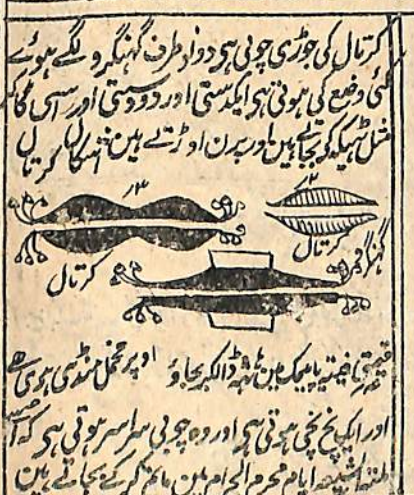 کرتال کی جوڑی چوبی ہی دو اد طرف گہنگرو لگے ہوئے
کئی وضع کی ہوتی ہی ایکدستی اور دو دستی اور اسی
مثل ٹہیکہ کو بجاتے ہین اور پرن اوڑتے ہین اشکال کرتال
۳ ۲
کرتال
گہنگرو
کرتال
قیمتی فیتہ یا پیک مین ہاتہہ ڈالکر بجاو اوپر مخمل منڈی ہوی ہے
اور ایک پنج نچی ہوتی ہی اور وہ چوبی سراسر ہوتی ہی کہ
ایام محرم الحرام مین ماتم کر کے بجاتے ہین